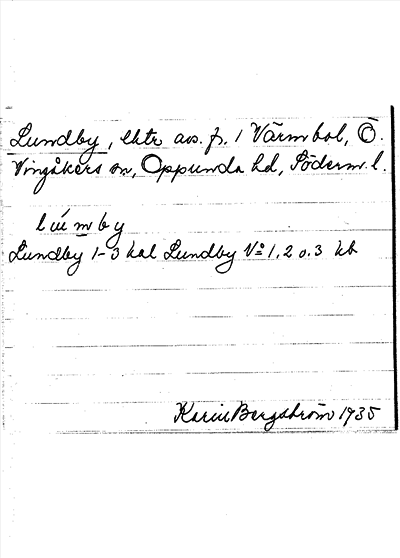 Lundby, ektr avs. fr. 1 Värmbol, Ö.
Vingåkers sn, Oppunda hd, Söderm. l.
lúmby
Lundby 1-3 kal Lundby Nº 1, 2 o. 3 kb
Karin Bergström 1935